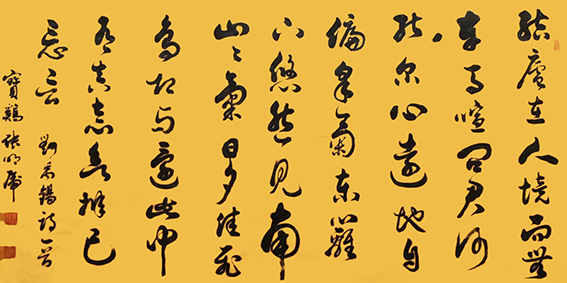 結廬在人境而無
車馬喧問君何
能爾心遠地自
偏采菊東籬
下悠然見南
山山氣日夕佳飛
鳥相與還此中
有真意欲辨已
忘言 劉禹錫詩一首
寶鷄張明虎